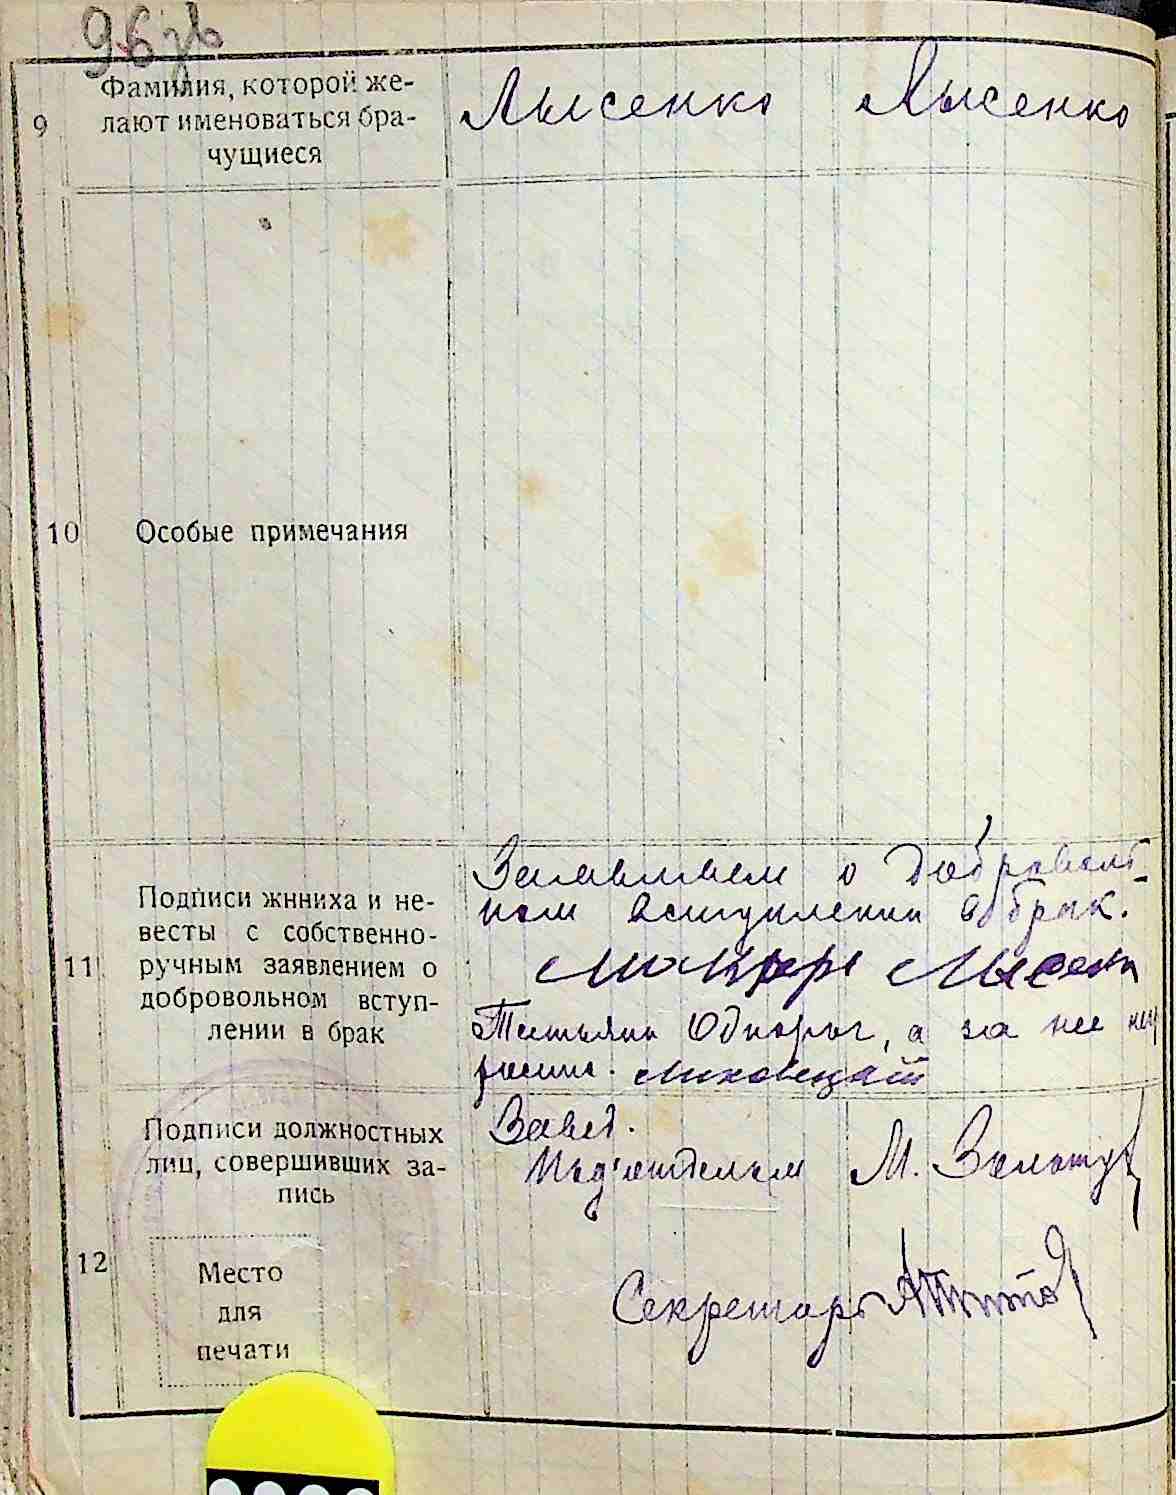 96 зв
9 Фамилия, которой же-
лают именоваться бра-
чущиеся
Лысенко Лысенко
10 Особые примечания
11 Подписи жнниха и не-
весты с собственно-
ручным заявлением о
добровольном вступ-
лении в брак
Заявляем о добровол
ном вступлении в брак.
Татьяна Однорог, а за нее
12 Подписи должностных
лиц, совершивших за-
пись
Завед.
Под'отделом М.
Секретарь
Место
для
печати